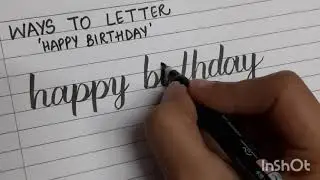 WAYS TO LETTER
'HAPPY BIRTHDAY'
happy birthday
InShOt